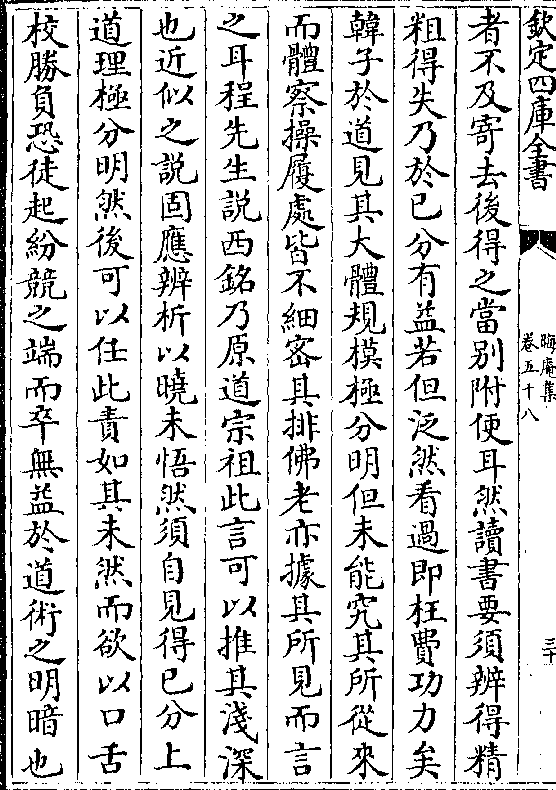 欽定四庫全書
晦庵集
卷五十八
三十
者不及寄去後得之當别附便耳然讀書要須辨得精
粗得失乃於已分有益若但泛然看過即枉費功力矣
韓子於道見其大體規模極分明但未能究其所從來
而體察操履處皆不細密其排佛老亦據其所見而言
之耳程先生説西銘乃原道宗祖此言可以推其淺深
也近似之説固應辨析以曉未悟然須自見得已分上
道理極分明然後可以任此責如其未然而欲以口舌
校勝負恐徒起紛競之端而卒無益於道術之明暗也